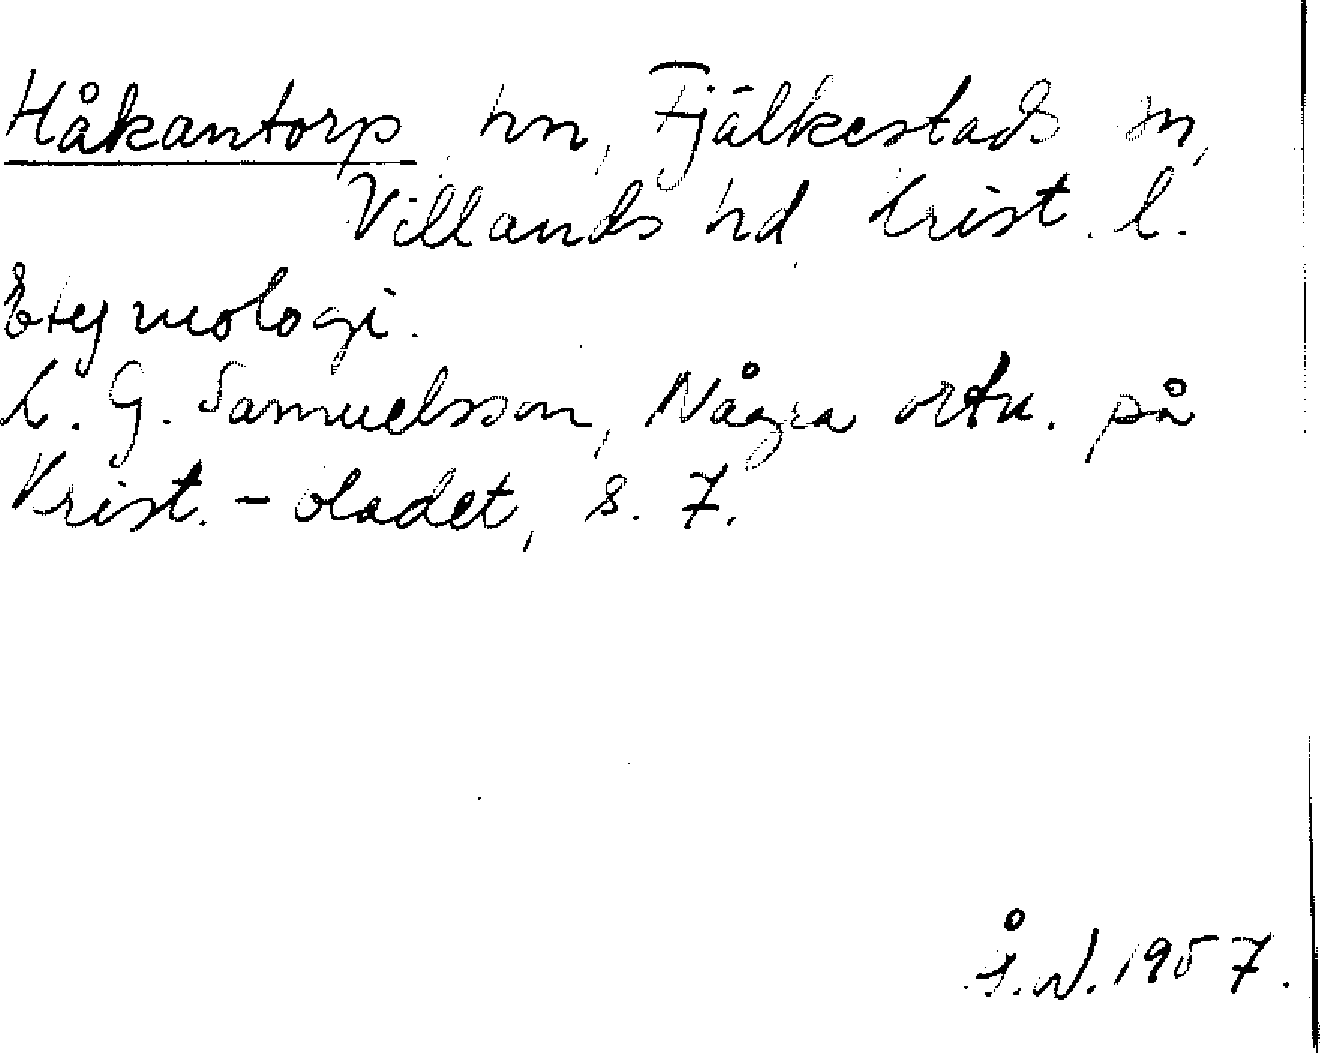 Håkantorp hn, Fjälkestads sn,
Villands hd, Krist. l.
Etymologi.
L. G. Samuelsson, Några ortn. på
Krist.-bladet, s. 7.
1957.